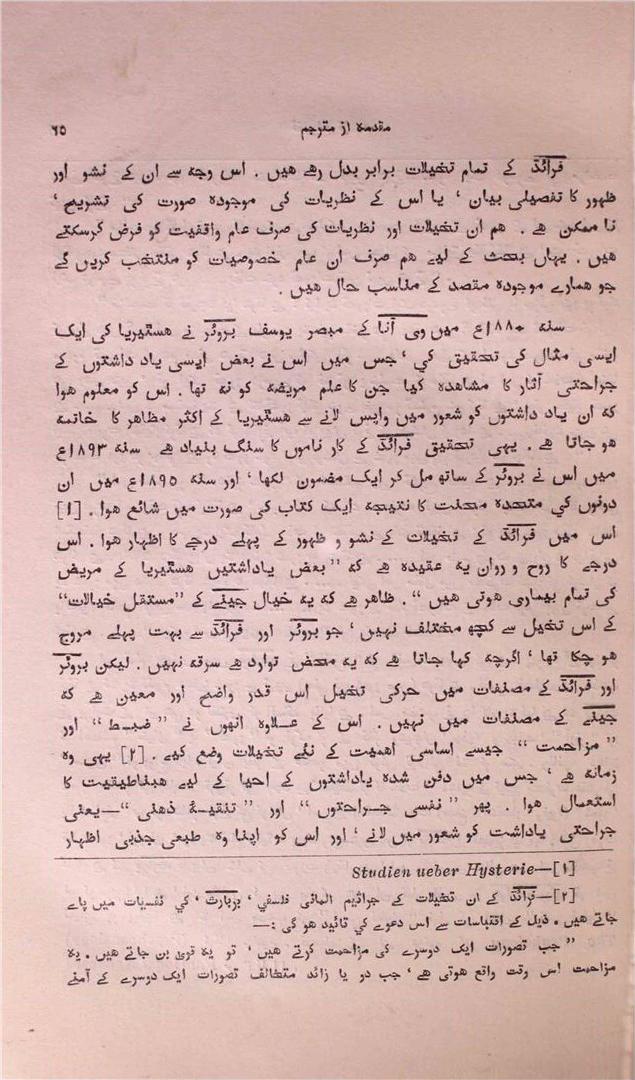 مقدمہ از مترجم ۶۵
فرائڈ کے تمام تخیلات برابر بدل رہے ہیں ۔ اس وجہ سے ان کے نشو اور
ظہور کا تفصیلی بیان ، یا اس کے نظریات کی موجودہ صورت کی تشریح ،
نا ممکن ہے ۔ ہم ان تخیلات اور نظریات کی صرف عام واقفیت کو فرض کرسکتے
ہیں ۔ یہاں بحث کے لیے ہم صرف ان عام خصوصیات کو منتخب کریں گے
جو ہمارے موجودہ مقصد کے مناسب حال ہیں ۔
سنہ ۱۸۸۰ع میں وی آنا کے مبصر یوسف بروئر نے ہسٹیریا کی ایک
ایسی مثال کی تحقیق کی ، جس میں اس نے بعض ایسی یاد داشتوں کے
جراحتی آثار کا مشاہدہ کیا جن کا علم مریضہ کو نہ تھا ۔ اس کو معلوم ہوا
کہ ان یاد داشتوں کو شعور میں واپس لانے سے ہسٹیریا کے اکثر مظاہر کا خاتمہ
ہو جاتا ہے ۔ یہی تحقیق فرائڈ کے کار ناموں کا سنگ بنیاد ہے سنہ ۱۸۹۳ع
میں اس نے بروئر کے ساتھ مل کر ایک مضمون لکھا ، اور سنہ ۱۸۹۵ع میں ان
دونوں کی متحدہ محنت کا نتیجہ ایک کتاب کی صورت میں شائع ہوا ۔ [۱]
اس میں فرائڈ کے تخیلات کے نشو و ظہور کے پہلے درجے کا اظہار ہوا ۔ اس
درجے کا روح و رواں یہ عقیدہ ہے کہ ” بعض یاداشتیں ہسٹیریا کے مریض
کی تمام بیماری ہوتی ہیں “ ۔ ظاہر ہے کہ یہ خیال جینے کے ”مستقل خیالات“
کے اس تخیل سے کچھ مختلف نہیں ، جو بروئر اور فرائڈ سے بہت پہلے مروج
ہو چکا تھا ، اگرچہ کہا جاتا ہے کہ یہ محض توارد ہے سرقہ نہیں ۔ لیکن بروئر
اور فرائڈ کے مصنفات میں حرکی تخیل اس قدر واضح اور معین ہے کہ
جینے کے مصنفات میں نہیں ۔ اس کے عـلاوہ انہوں نے ” ضبـط “ اور
” مزاحمت “ جیسے اساسی اہمیت کے نئے تخیلات وضع کیے ۔ [۲] یہی وہ
زمانہ ہے ، جس میں دفن شدہ یاداشتوں کے احیا کے لیے ہپناطیقیت کا
استعمال ہوا ۔ پھر ” نفسی جـراحتوں “ اور ” تنقیـۂ ذہنی “—یعنی
جراحتی یاداشت کو شعور میں لانے ، اور اس کو اپنا وہ طبعی جذبی اظہار
[۱]—Studien ueber Hysterie
[۲]—فرائڈ کے ان تخیلات کے جراثیم المانی فلسفی ، ہربارٹ ، کی نفسیات میں پاے
جاتے ہیں ۔ ذیل کے اقتباسات سے اس دعوے کی تائید ہو گی :—
” جب تصورات ایک دوسرے کی مزاحمت کرتے ہیں ، تو یہ قوی بن جاتے ہیں ۔ یہ
مزاحمت اس وقت واقع ہوتی ہے ، جب دو یا زائد متخالف تصورات ایک دوسرے کے آمنے